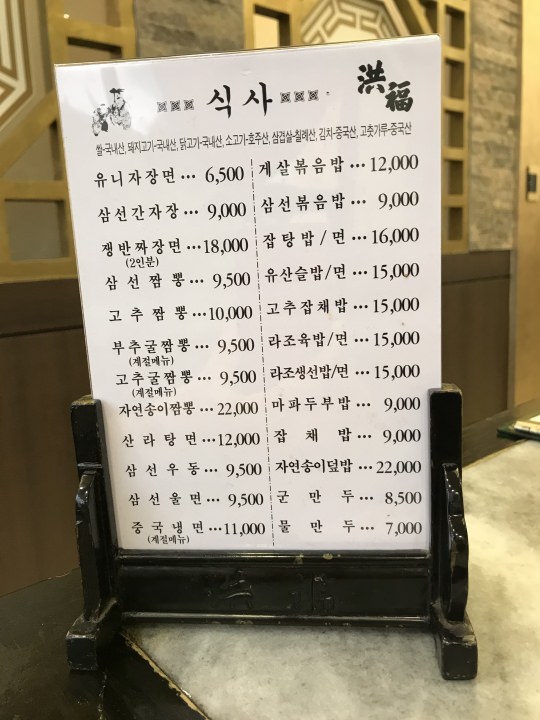 식사
洪福
쌀-국내산, 돼지고기-국내산, 닭고기-국내산, 소고기-호주산, 삼겹살-칠레산, 김치-중국산, 고춧가루-중국산
유니자장면 ··· 6,500
삼선간자장 ··· 9,000
쟁반짜장면 ···18,000
(2인분)
삼선짬뽕 ··· 9,500
고추짬뽕 ···10,000
부추굴짬뽕 ··· 9,500
(계절메뉴)
고추굴짬뽕 ··· 9,500
(계절메뉴)
자연송이짬뽕 ··· 22,000
산라탕면 ···12,000
삼선우동 ··· 9,500
삼선울면 ··· 9,500
중국냉면 ···11,000
(계절메뉴)
게살볶음밥 ··· 12,000
삼선볶음밥 ··· 9,000
잡탕밥/면 ··· 16,000
유산슬밥/면 ··· 15,000
고추잡채밥 ··· 15,000
라조육밥/면 ··· 15,000
라조생선밥/면 ··· 15,000
마파두부밥 ··· 9,000
잡채밥 ··· 9,000
자연송이덮밥 ··· 22,000
군만두 ··· 8,500
물만두 ··· 7,000